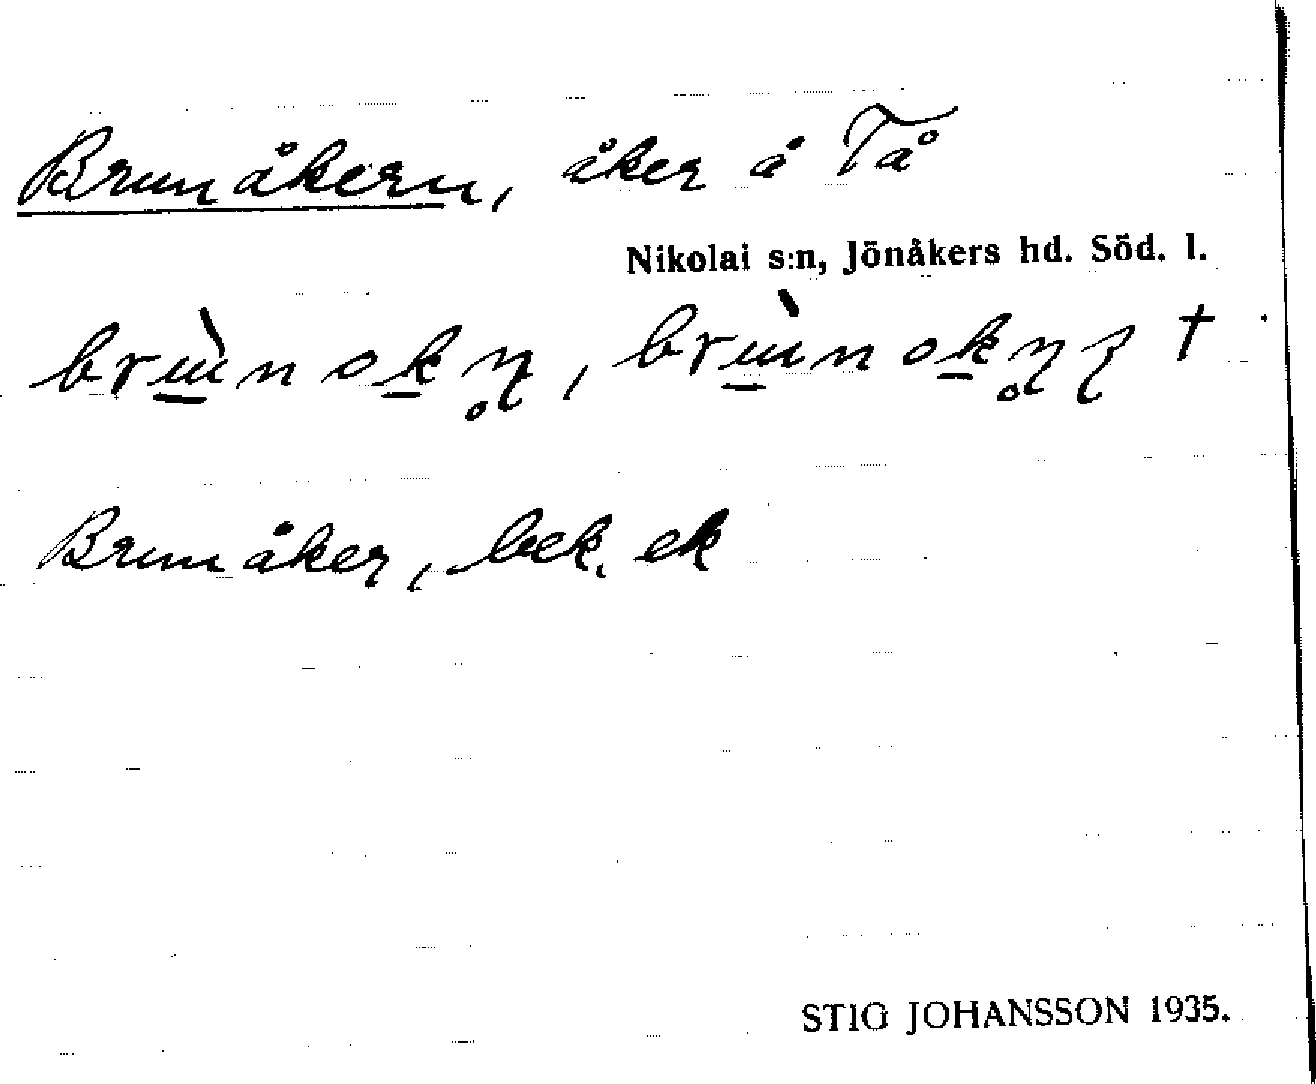 Brunåkern, åker å Tå
Nikolai s:n, Jönåkers hd. Söd. l.
Brunåker, bek. ek
STIG JOHANSSON 1935.